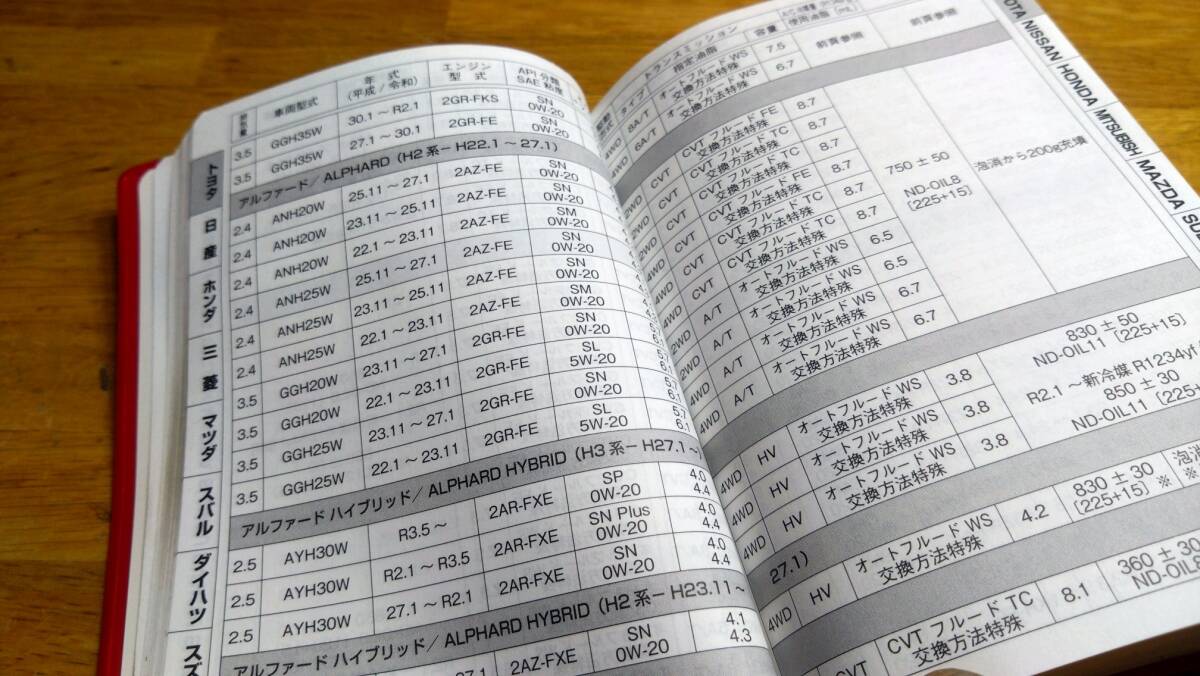 排気量 車両型式 年式 (平成/令和) エンジン型式 API分類 SAE粘度
3.5 GGH35W 30.1～R2.1 2GR-FKS SN 0W-20
3.5 GGH35W 27.1～30.1 2GR-FE SN 0W-20
アルファード/ALPHARD (H2系－H22.1～27.1)
2.4 ANH20W 25.11～27.1 2AZ-FE SN 0W-20
2.4 ANH20W 23.11～25.11 2AZ-FE SN 0W-20
2.4 ANH20W 22.1～23.11 2AZ-FE SM 0W-20
2.4 ANH25W 25.11～27.1 2AZ-FE SN 0W-20
2.4 ANH25W 23.11～25.11 2AZ-FE SN 0W-20
2.4 ANH25W 22.1～23.11 2AZ-FE SM 0W-20
3.5 GGH20W 23.11～27.1 2GR-FE SN 0W-20
3.5 GGH20W 22.1～23.11 2GR-FE SL 5W-20
3.5 GGH25W 23.11～27.1 2GR-FE SN 0W-20 5.7 6.1
3.5 GGH25W 22.1～23.11 2GR-FE SL 5W-20 5.7 6.1
アルファード ハイブリッド/ALPHARD HYBRID (H3系－H27.1～
2.5 AYH30W R3.5～ 2AR-FXE SP 0W-20 4.0 4.4
2.5 AYH30W R2.1～R3.5 2AR-FXE SN Plus 0W-20 4.0 4.4
2.5 AYH30W 27.1～R2.1 2AR-FXE SN 0W-20 4.0 4.4
アルファード ハイブリッド/ALPHARD HYBRID (H2系－H23.11～
2AZ-FXE SN 0W-20 4.1 4.3
トヨタ
日産
ホンダ
三菱
マツダ
スバル
ダイハツ
スズ
タイプ トランスミッション 指定油脂 容量 使用油脂 前頁参照
4WD 8A/T オートフルード WS 交換方法特殊 7.5 前頁参照
4WD 6A/T オートフルード WS 交換方法特殊 6.7
2WD CVT CVT フルード FE 交換方法特殊 8.7
2WD CVT CVT フルード TC 交換方法特殊 8.7
2WD CVT CVT フルード TC 交換方法特殊 8.7
4WD CVT CVT フルード FE 交換方法特殊 8.7
4WD CVT CVT フルード TC 交換方法特殊 8.7
4WD CVT CVT フルード TC 交換方法特殊 8.7
2WD A/T オートフルード WS 交換方法特殊 6.5
2WD A/T オートフルード WS 交換方法特殊 6.5
4WD A/T オートフルード WS 交換方法特殊 6.7
4WD A/T オートフルード WS 交換方法特殊 6.7
750±50
ND-OIL8
〔225+15〕
泡消から200g充填
4WD HV オートフルード WS 交換方法特殊 3.8
4WD HV オートフルード WS 交換方法特殊 3.8
4WD HV オートフルード WS 交換方法特殊 3.8
830±50
ND-OIL11〔225+15〕
R2.1～新冷媒 R1234yf
850±30
ND-OIL11〔225
27.1)
4WD HV オートフルード WS 交換方法特殊 4.2 830±30 〔225+15〕※ 泡消 ※
CVT CVT フルード TC 交換方法特殊 8.1 360±30 ND-OIL8
OTA NISSAN HONDA MITSUBISHI MAZDA SU